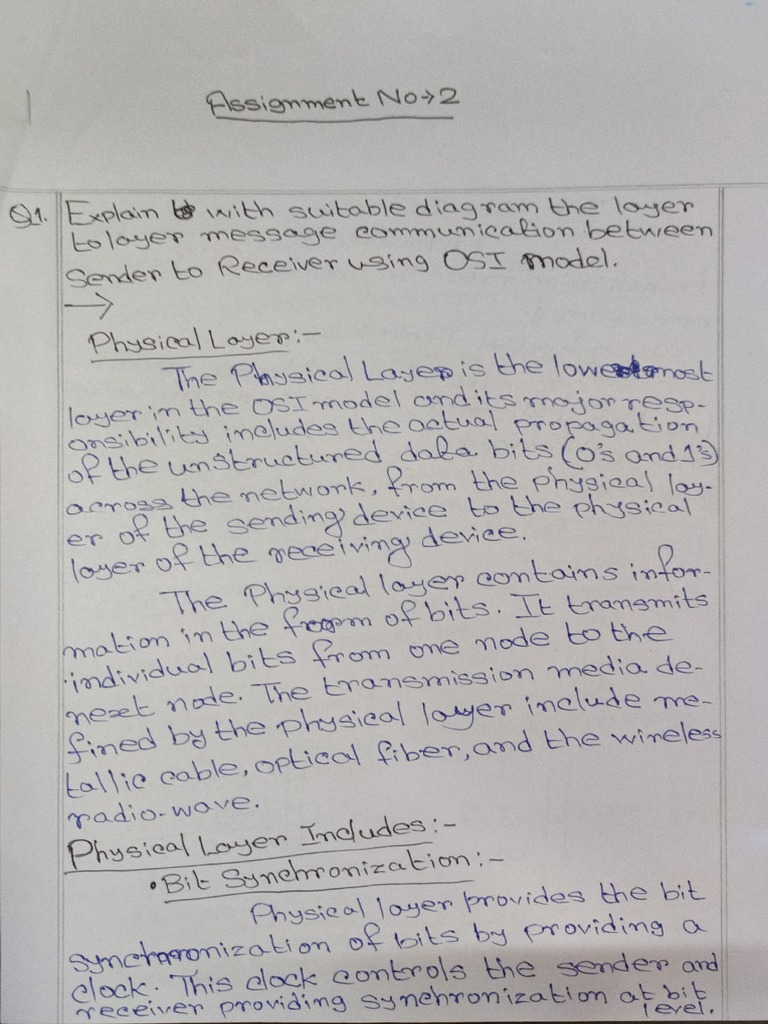 Assignment No→2
Q1. Explain with suitable diagram the layer
to layer message communication between
Sender to Receiver using OSI model.
→
Physical Layer:-
The Physical Layer is the lowermost
layer in the OSI model and its major resp-
onsibility includes the actual propagation
of the unstructured data bits (0's and 1's)
across the network, from the physical lay-
er of the sending device to the physical
layer of the receiving device.
The Physical layer contains infor-
mation in the from of bits. It transmits
individual bits from one node to the
next node. The transmission media de-
fined by the physical layer include me-
tallic cable, optical fiber, and the wireless
radio-wave.
Physical Layer Includes:-
• Bit Synchronization:-
Physical layer provides the bit
synchronization of bits by providing a
clock. This clock controls the sender and
receiver providing synchronization at bit
level.